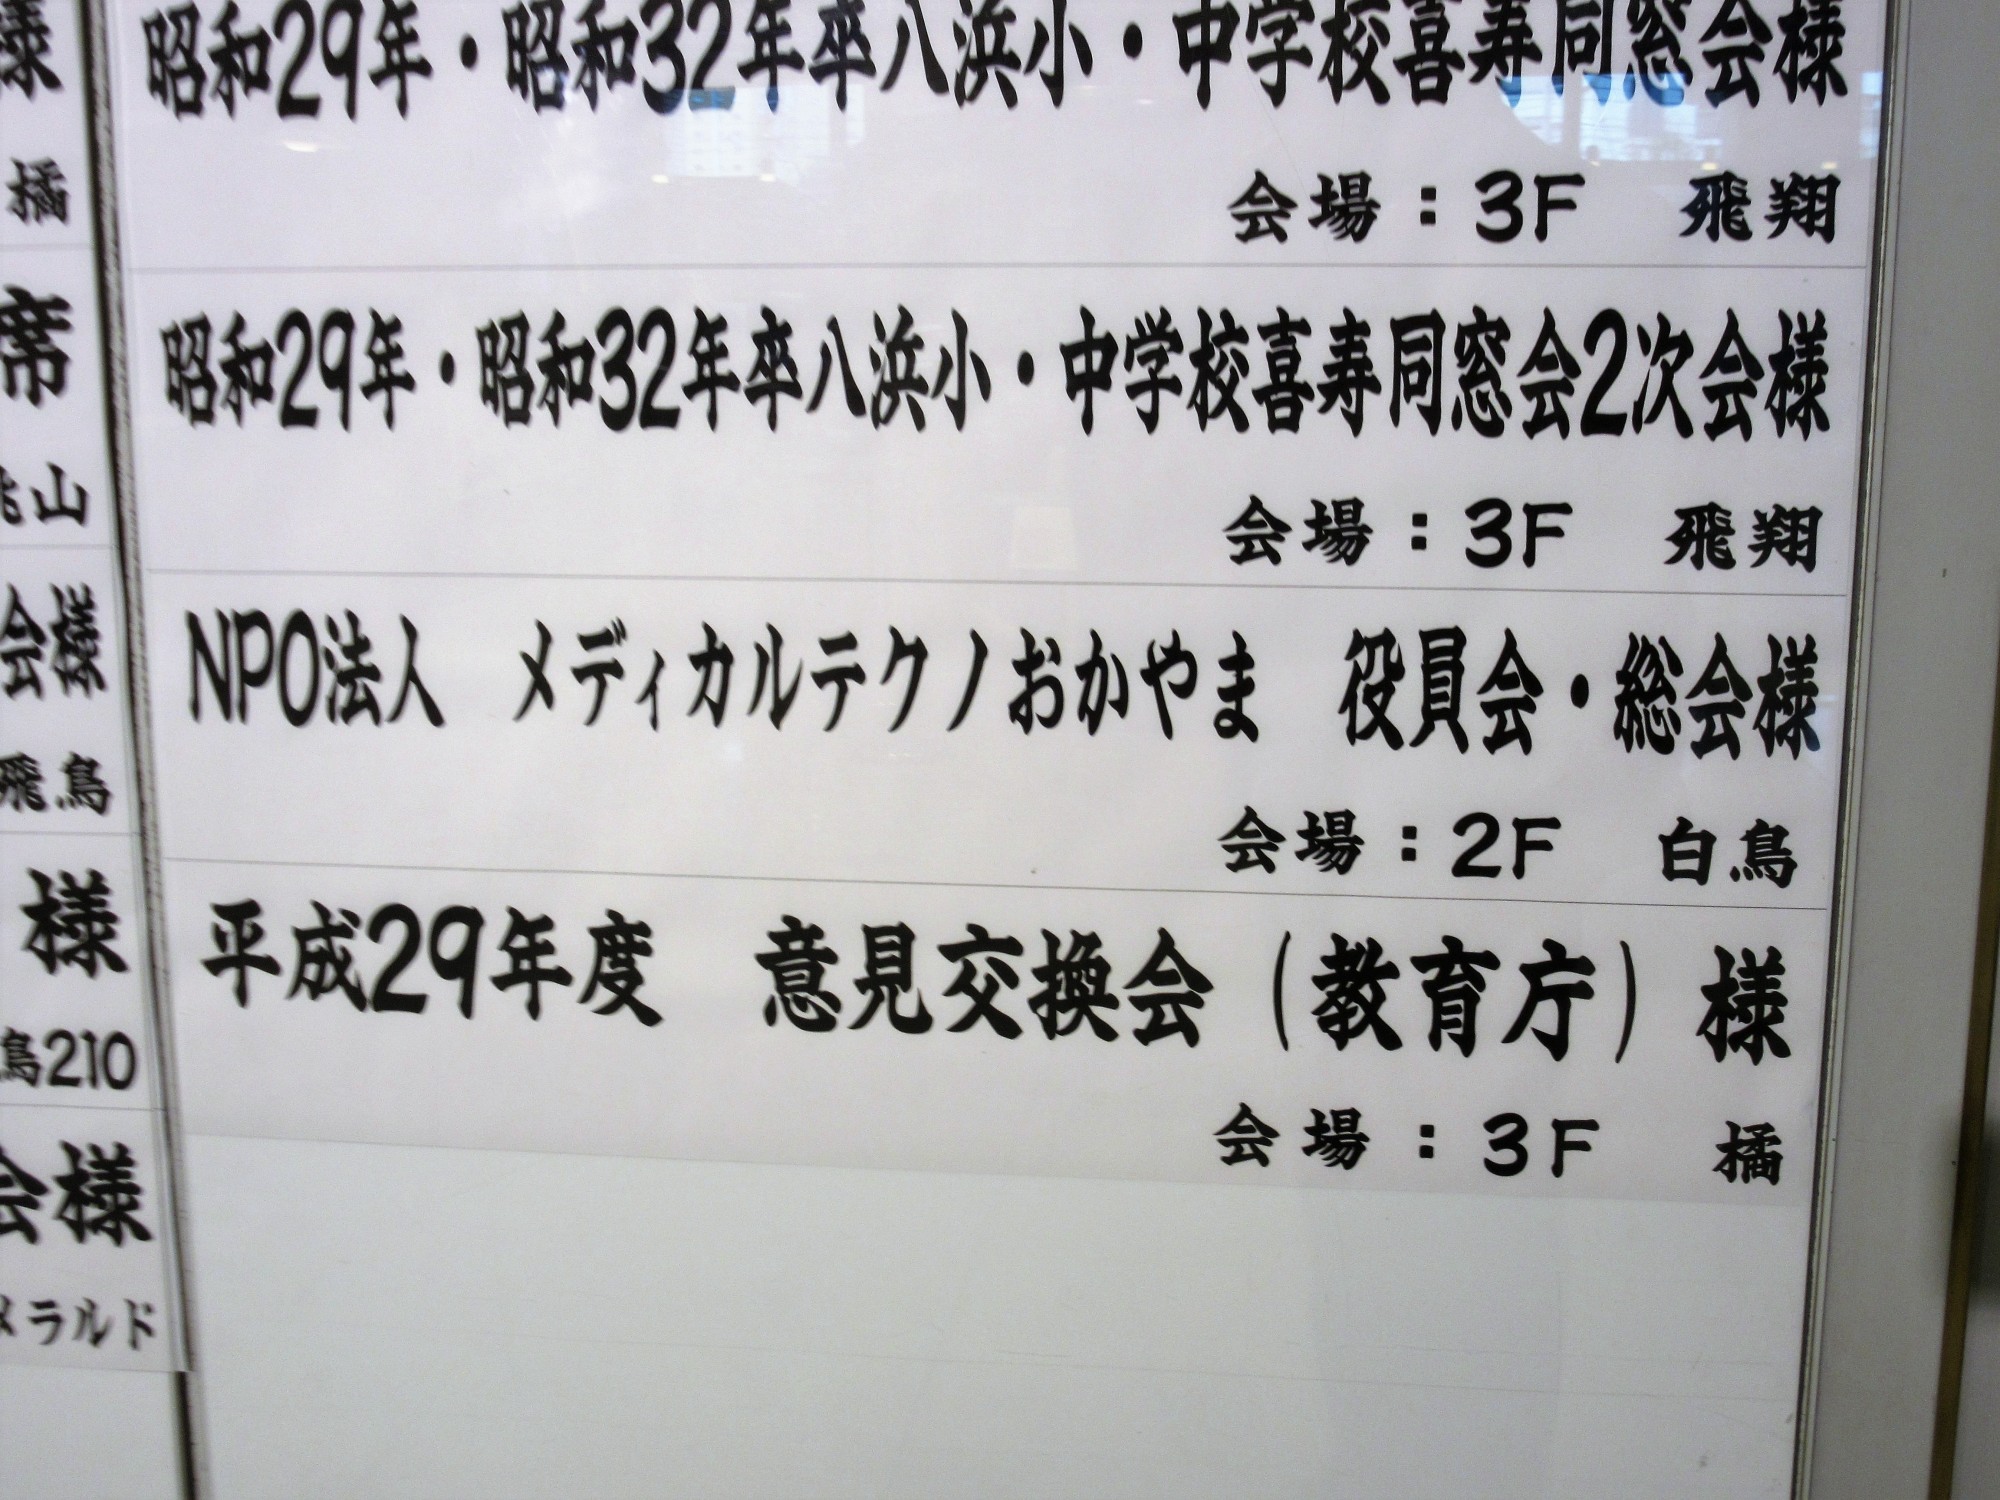 様
橘
席
山
会様
飛鳥
様
鳥210
会様
メラルド
昭和29年・昭和32年卒八浜小・中学校喜寿同窓会様
会場：3F　飛翔
昭和29年・昭和32年卒八浜小・中学校喜寿同窓会2次会様
会場：3F　飛翔
NPO法人　メディカルテクノおかやま　役員会・総会様
会場：2F　白鳥
平成29年度　意見交換会（教育庁）様
会場：3F　橘